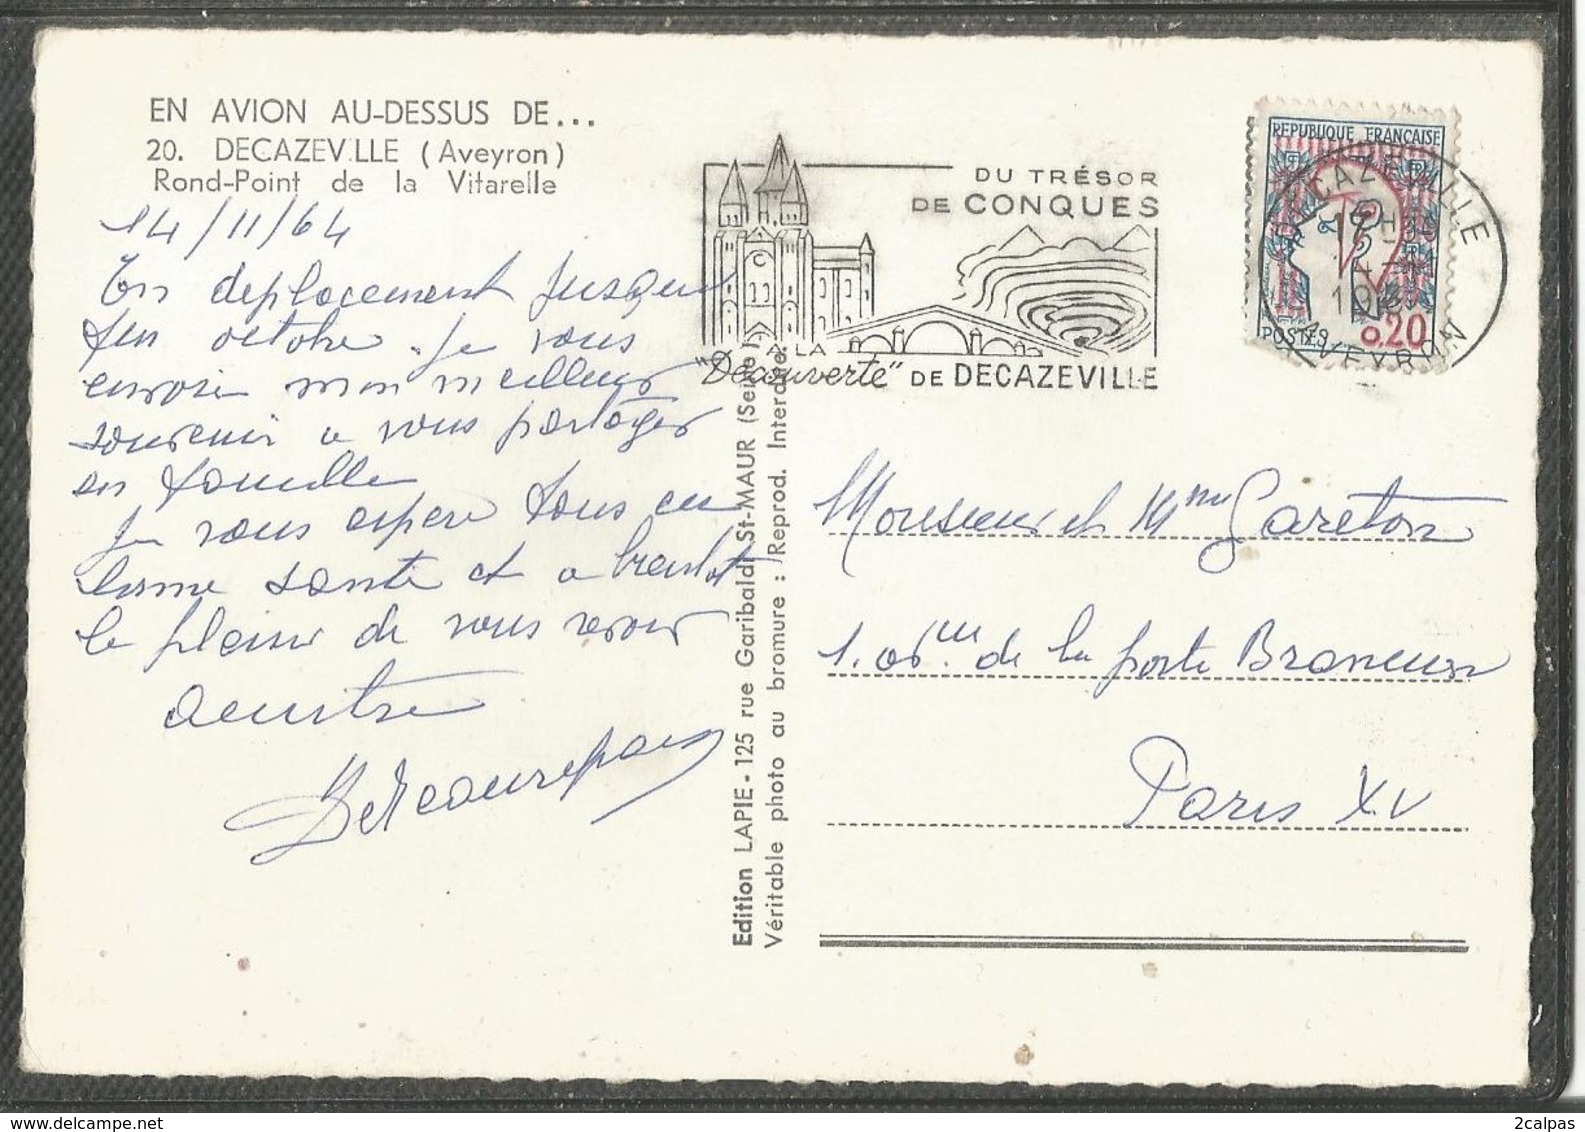 EN AVION AU-DESSUS DE...
20. DECAZEVILLE (Aveyron)
Rond-Point de la Vitarelle
14/11/64
En deplacement jusque
fin octobre. Je vous
envoie mon meilleur
souvenir a vous partager
en famille
Je vous espere tous en
bonne sante et a bientot
le plaisir de vous revoir
Edition LAPIE - 125 rue Garibaldi, St-MAUR (Seine)
Véritable photo au bromure : Reprod. Interdite
DU TRÉSOR
DE CONQUES
A LA
"Découverte" DE DECAZEVILLE
REPUBLIQUE FRANÇAISE
POSTES 0,20
DECAZEVILLE
AVEYRON
Monsieur et Mme Gareton
1. de la porte Brancion
Paris XV
2calpas